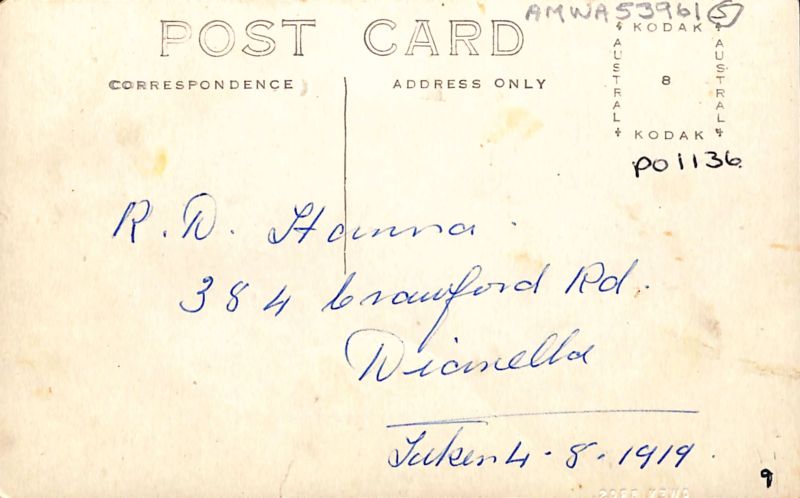 AMWA53961 5
POST CARD
CORRESPONDENCE
ADDRESS ONLY
KODAK
AUSTRAL
8
AUSTRAL
KODAK
PO1136
R. D. Hanna.
384 Crawford Rd.
Dianella
Taken 4-8-1919.
9